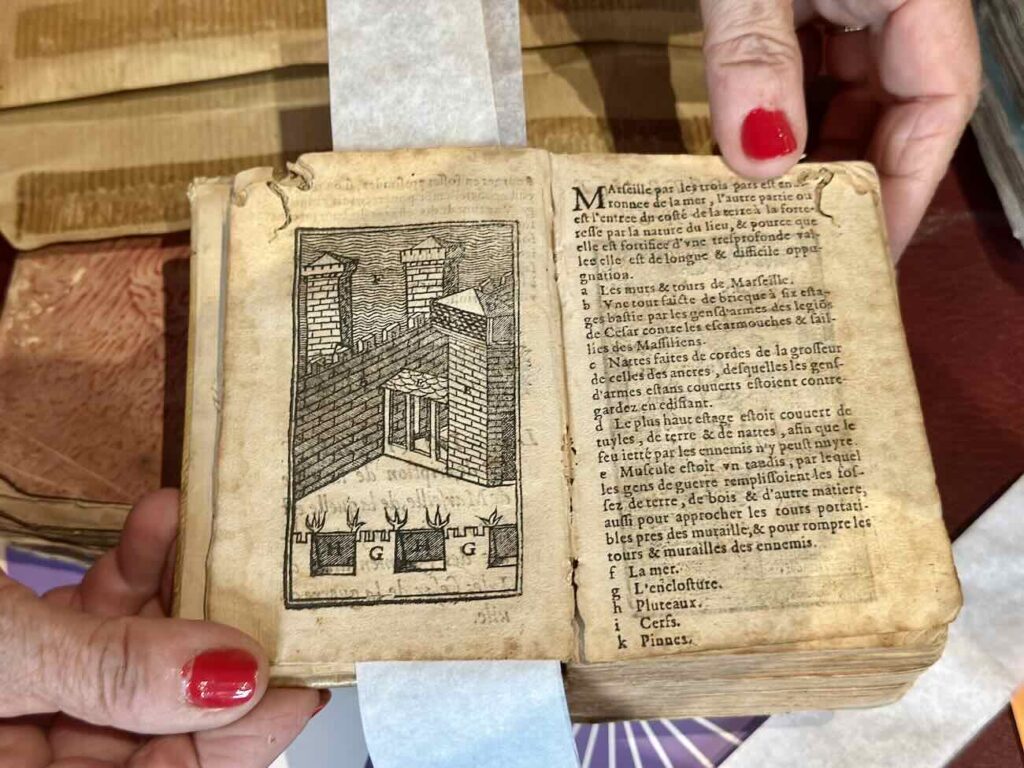 F
H G H G
MArseille par les trois pars est en-
ronnee de la mer, l'autre partie ou
est l'entree du costé de la terre à la forte-
resse par la nature du lieu, & pource que
elle est fortifiee d'vne tresprofonde val-
lee elle est de longue & difficile oppu-
gnation.
a Les murs & tours de Marseille.
b Vne tour faicte de bricque à six esta-
ges bastie par les gensd'armes des legiõs
de Cesar contre les escarmouches & sail-
lies des Massiliens.
c Nattes faites de cordes de la grosseur
de celles des ancres, desquelles les gens-
d'armes estans couuerts estoient contre-
gardez en edifiant.
d Le plus haut estage estoit couuert de
tuyles, de terre & de nattes, afin que le
feu ietté par les ennemis n'y peust nuyre.
e Muscule estoit vn taudis, par lequel
les gens de guerre remplissoient les fos-
sez de terre, de bois & d'autre matiere,
aussi pour approcher les tours portati-
bles pres des muraille, & pour rompre les
tours & murailles des ennemis.
f La mer.
g L'enclosture.
h Pluteaux.
i Cerfs.
k Pinnes.